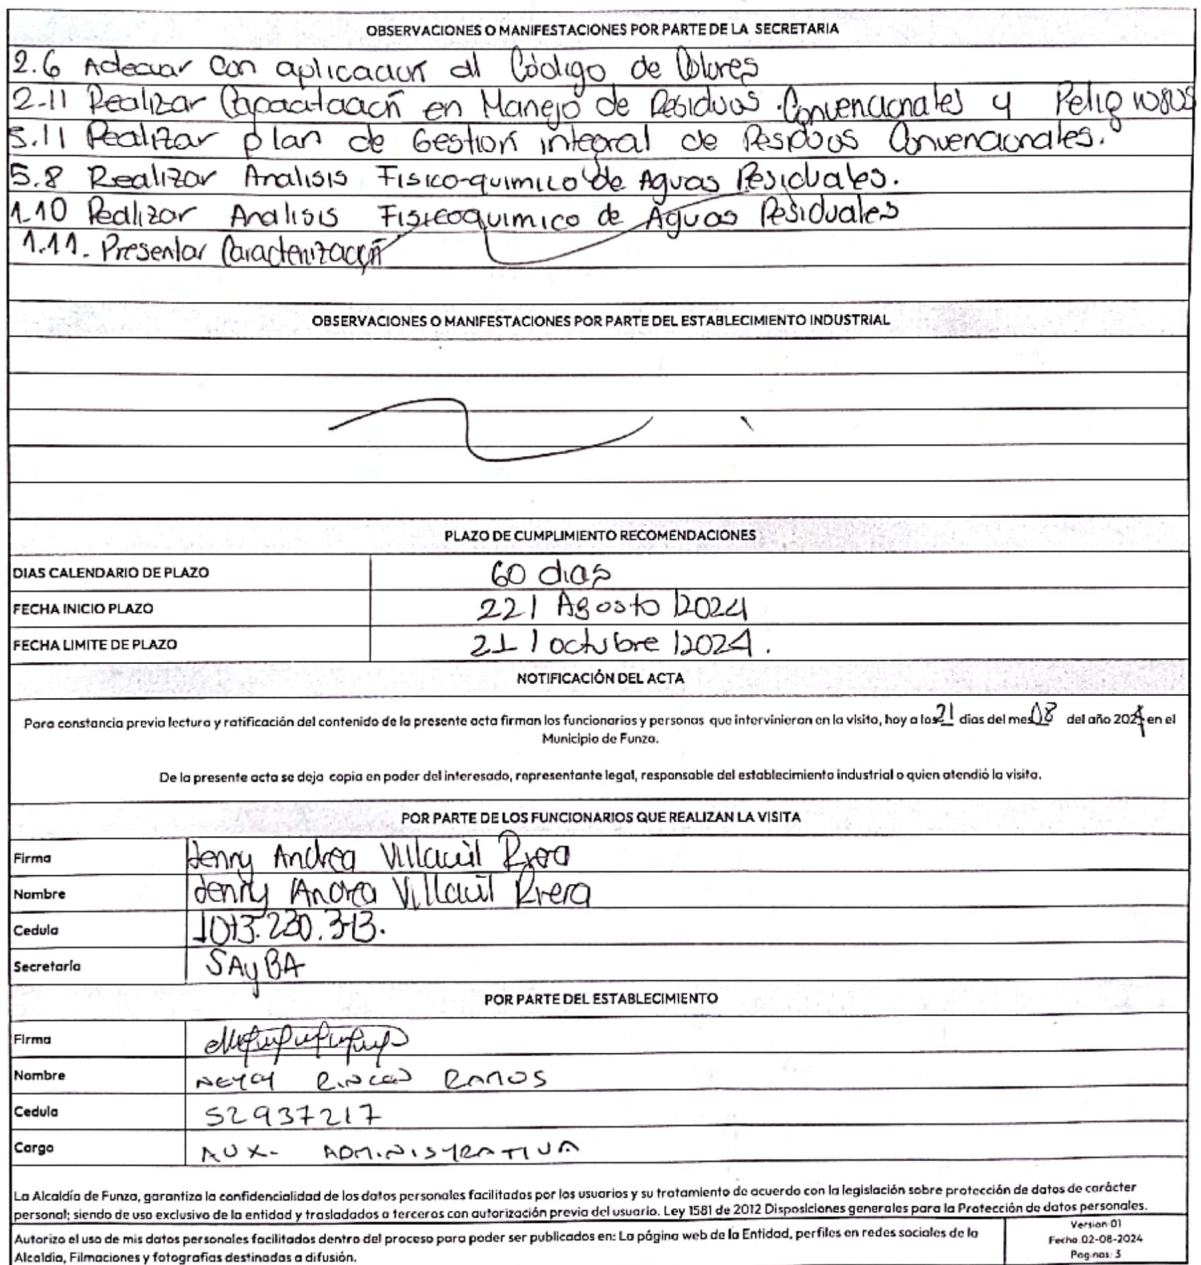 OBSERVACIONES O MANIFESTACIONES POR PARTE DE LA SECRETARIA
2.6 Adecuar con aplicacion al Código de Colores
2-11 Realizar Capacitación en Manejo de Residuos Convencionales y Peligrosos
3.11 Realizar plan de Gestion integral de Residuos Convencionales.
5.8 Realizar Analisis Fisico-quimico de Aguas Residuales.
1.10 Realizar Analisis Fisicoquimico de Aguas Residuales
1.11. Presentar Caracterización
OBSERVACIONES O MANIFESTACIONES POR PARTE DEL ESTABLECIMIENTO INDUSTRIAL
PLAZO DE CUMPLIMIENTO RECOMENDACIONES
DIAS CALENDARIO DE PLAZO 60 dias
FECHA INICIO PLAZO 22 / Agosto / 2024
FECHA LIMITE DE PLAZO 21 / octubre / 2024.
NOTIFICACIÓN DEL ACTA
Para constancia previa lectura y ratificación del contenido de la presente acta firman los funcionarios y personas que intervinieron en la visita, hoy a los 21 dias del mes 08 del año 2024 en el
Municipio de Funza.
De la presente acta se deja copia en poder del interesado, representante legal, responsable del establecimiento industrial o quien atendió la visita.
POR PARTE DE LOS FUNCIONARIOS QUE REALIZAN LA VISITA
Firma Jenny Andrea Villamil
Nombre Jenny Andrea Villamil
Cedula
Secretaría SAyBA
POR PARTE DEL ESTABLECIMIENTO
Firma
Nombre RINCON RAMOS
Cedula 52937217
Cargo AUX. ADMINISTRATIVA
La Alcaldía de Funza, garantiza la confidencialidad de los datos personales facilitados por los usuarios y su tratamiento de acuerdo con la legislación sobre protección de datos de carácter
personal; siendo de uso exclusivo de la entidad y trasladados a terceros con autorización previa del usuario. Ley 1581 de 2012 Disposiciones generales para la Protección de datos personales.
Autorizo el uso de mis datos personales facilitados dentro del proceso para poder ser publicados en: La página web de la Entidad, perfiles en redes sociales de la
Alcaldia, Filmaciones y fotografias destinadas a difusión.
Version 01
Fecha 02-08-2024
Paginas: 3